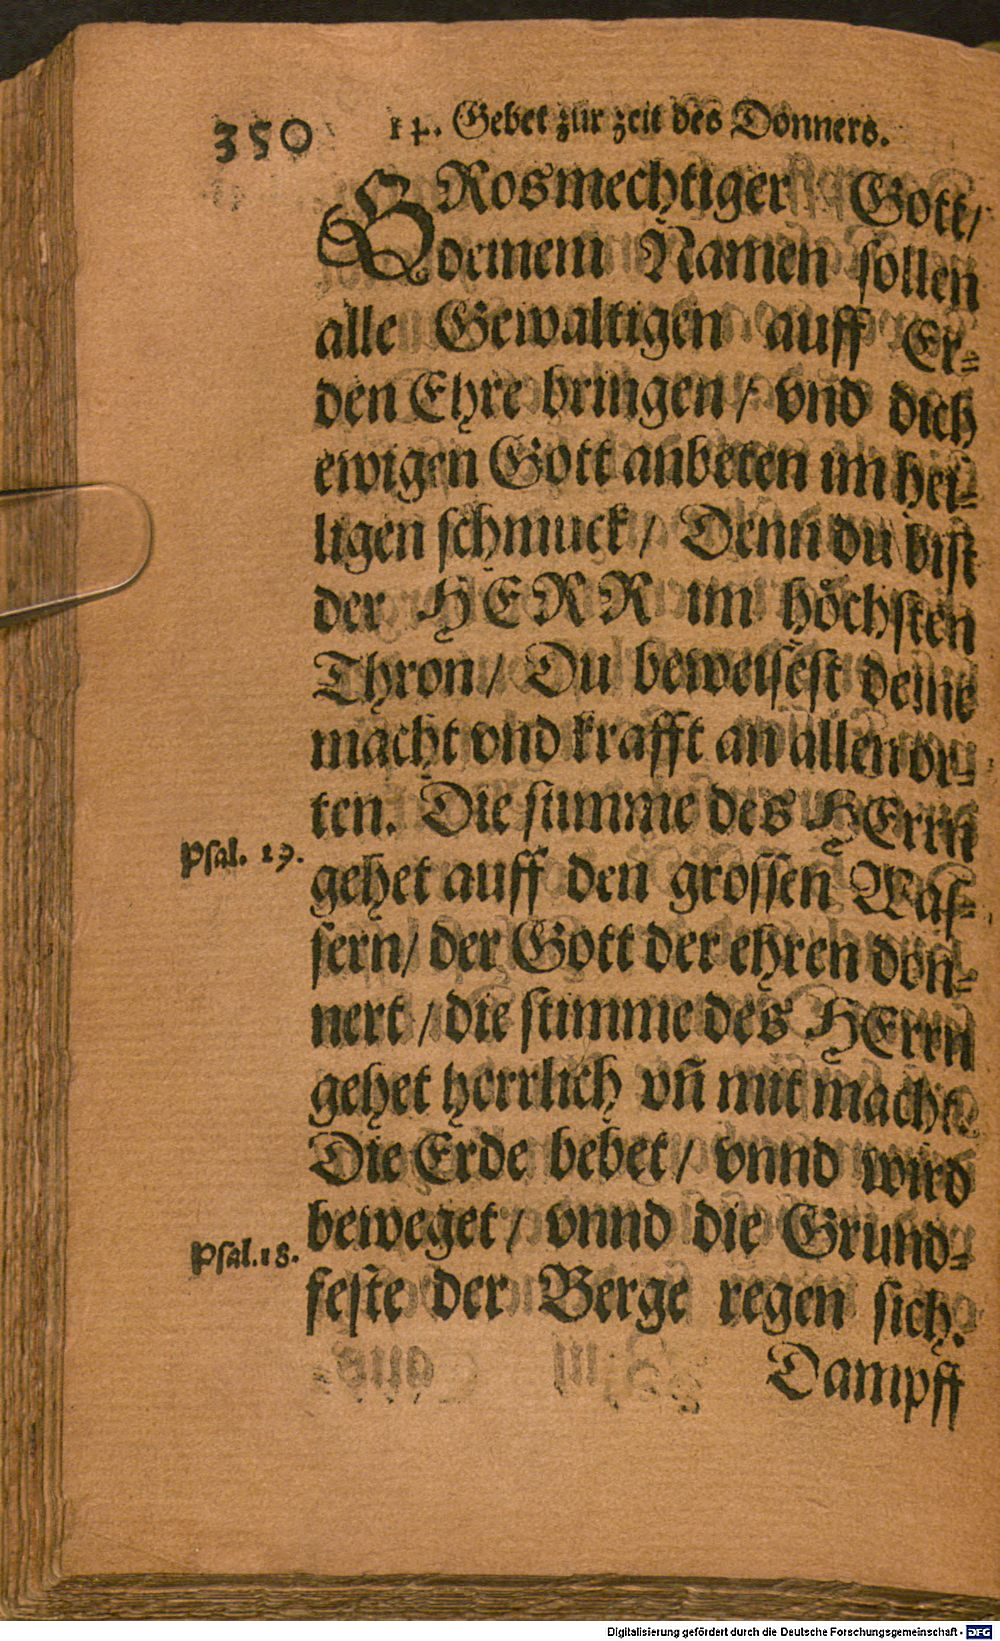 350
14. Gebet zur zeit des Donners.
GRosmechtiger Gott/
deinem Namen sollen
alle Gewaltigen auff Er-
den Ehre bringen / vnd dich
ewigen Gott anbeten im hei-
ligen schmuck / Denn du bist
der HERR im höchsten
Thron / Du beweisest deine
macht vnd krafft an allen or-
ten. Die stimme des HErrn
Psal. 29.
gehet auff den grossen Was-
sern / der Gott der ehren don-
nert / die stimme des HErrn
gehet herrlich vñ mit macht.
Die Erde bebet / vnnd wird
beweget / vnnd die Grund-
Psal. 18.
feste der Berge regen sich.
Dampff
Digitalisierung gefördert durch die Deutsche Forschungsgemeinschaft - DFG